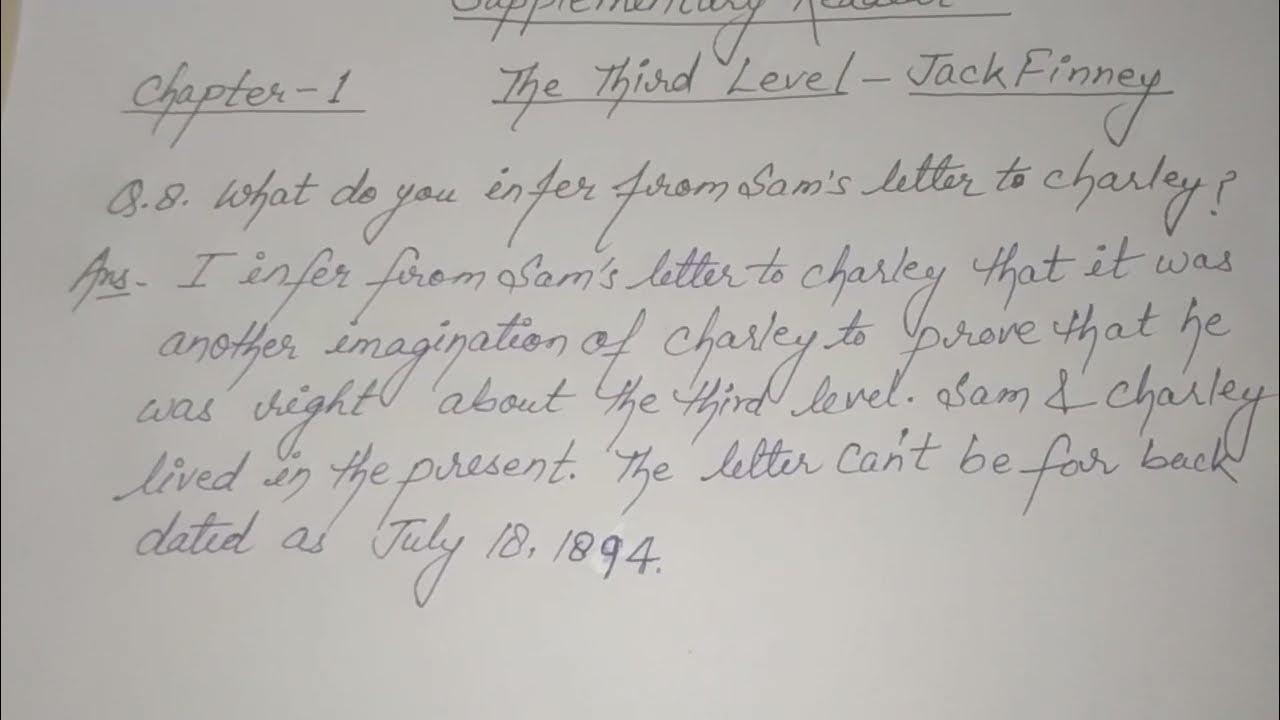 Supplementary Reader
Chapter-1 The Third Level - Jack Finney
Q.8. What do you infer from Sam's letter to Charley?
Ans- I infer from Sam's letter to Charley that it was
another imagination of Charley to prove that he
was right about the third level. Sam & Charley
lived in the present. The letter can't be far back
dated as July 18, 1894.